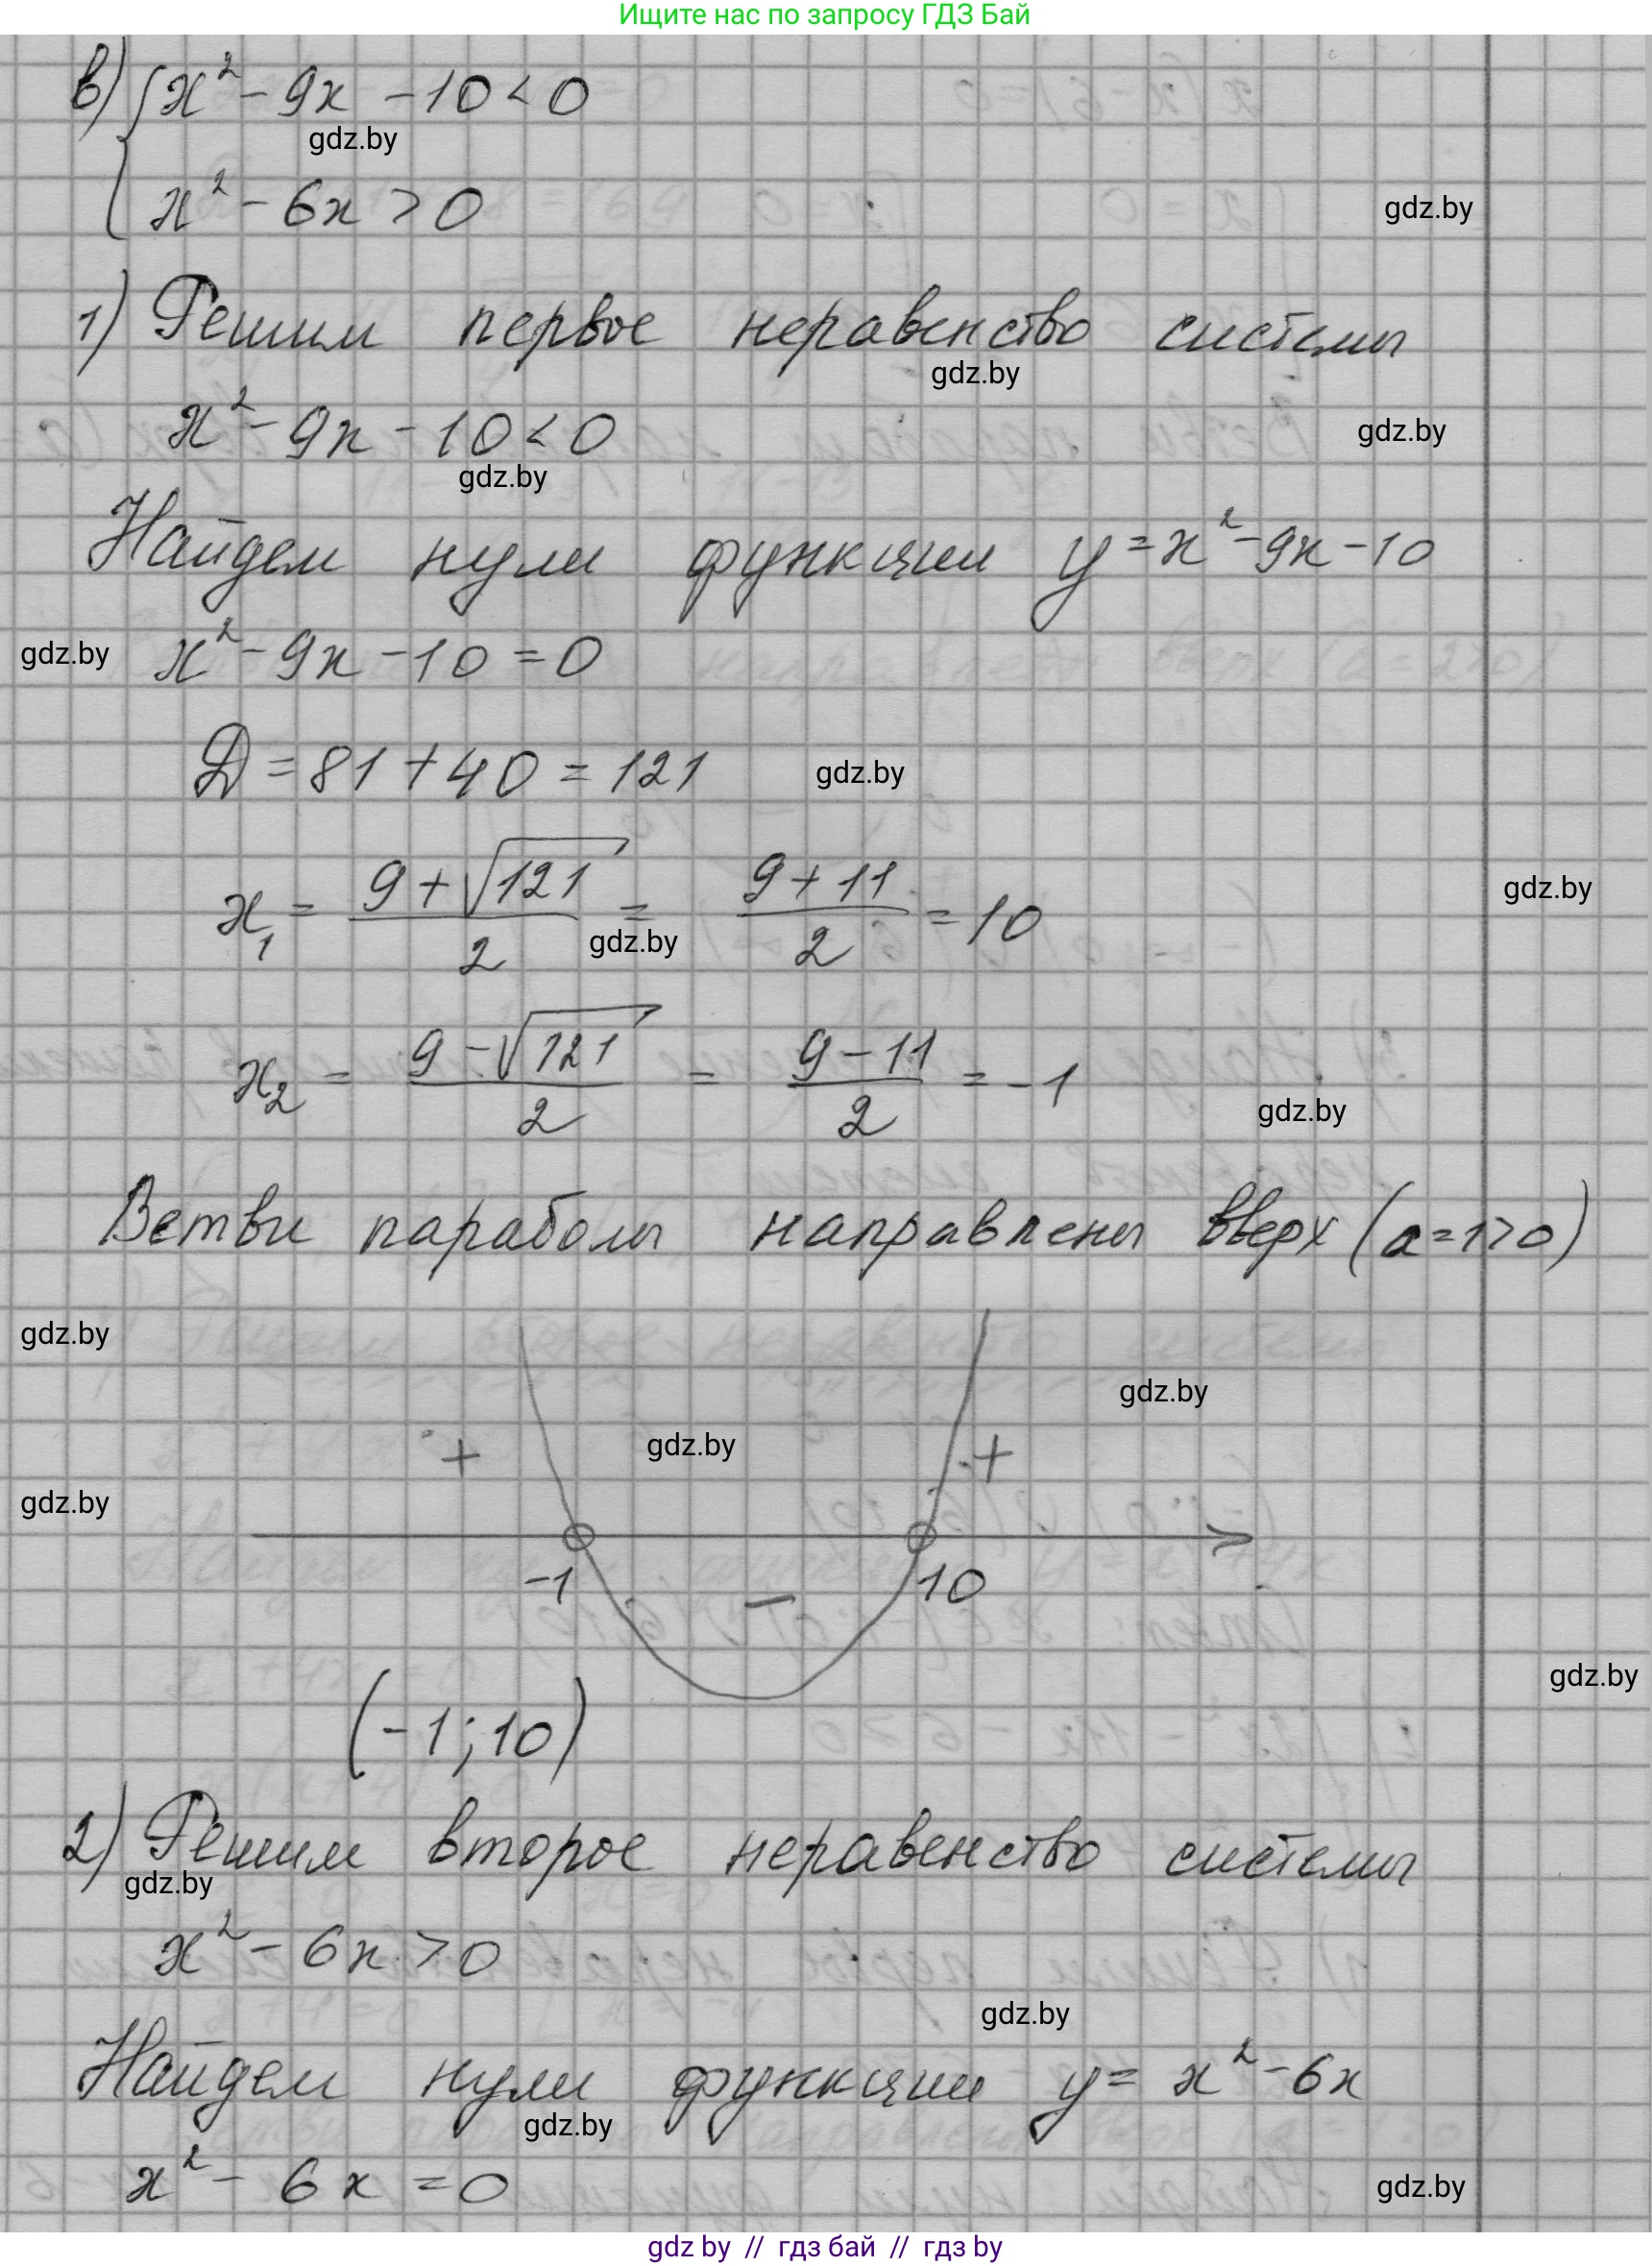 Ищите нас по запросу ГДЗ Бай
в) { x² - 9x - 10 < 0
gdz.by
x² - 6x > 0
gdz.by
1) Решим первое неравенство системы
gdz.by
x² - 9x - 10 < 0
gdz.by
gdz.by
Найдем нули функции y = x² - 9x - 10
gdz.by
x² - 9x - 10 = 0
D = 81 + 40 = 121
gdz.by
x₁ = (9 + √121)/2 = (9 + 11)/2 = 10
gdz.by
gdz.by
x₂ = (9 - √121)/2 = (9 - 11)/2 = -1
gdz.by
Ветви параболы направлены вверх (a = 1 > 0)
gdz.by
gdz.by
gdz.by
+ +
gdz.by
-1 - 10
gdz.by
(-1; 10)
2) Решим второе неравенство системы
gdz.by
x² - 6x > 0
gdz.by
Найдем нули функции y = x² - 6x
gdz.by
x² - 6x = 0
gdz.by
gdz by // гдз бай // gdz by